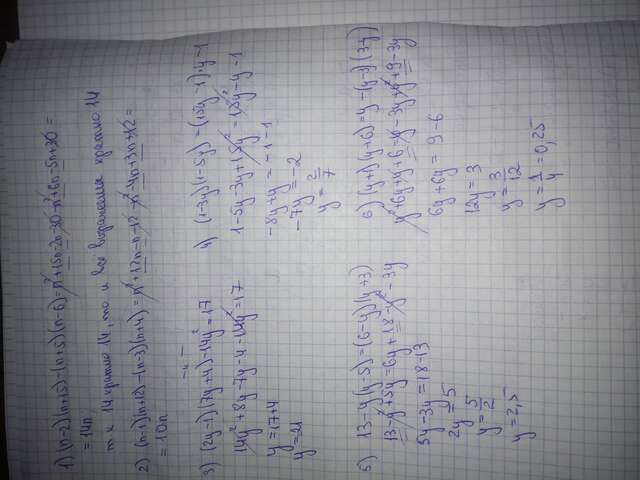 1) (n-2)(n+15)-(n+5)(n-6)=n²+15n-2n-30-n²+6n-5n+30=
=14n
т.к 14 кратно 14, то и всё выражение кратно 14
2) (n-1)(n+12)-(n-3)(n+4)=n²+12n-n-12-n²-4n+3n+12=
=10n
3) (2y-1)(7y+4)-14y²=17
14y²+8y-7y-4-14y²=17
y=17+4
y=21
4) (1-3y)(1-5y)=(15y-1)·y-1
1-5y-3y+15y²=15y²-y-1
-8y+y=-1-1
-7y=-2
y=2/7
5) 13-y(y-5)=(6-y)(y+3)
13-y²+5y=6y+18-y²-3y
5y-3y=18-13
2y=5
y=5/2
y=2,5
6) (y+1)(y+6)=y-(y-3)(3+y)
6y+6y=9-6
12y=3
y=3/12
y=1/4=0,25